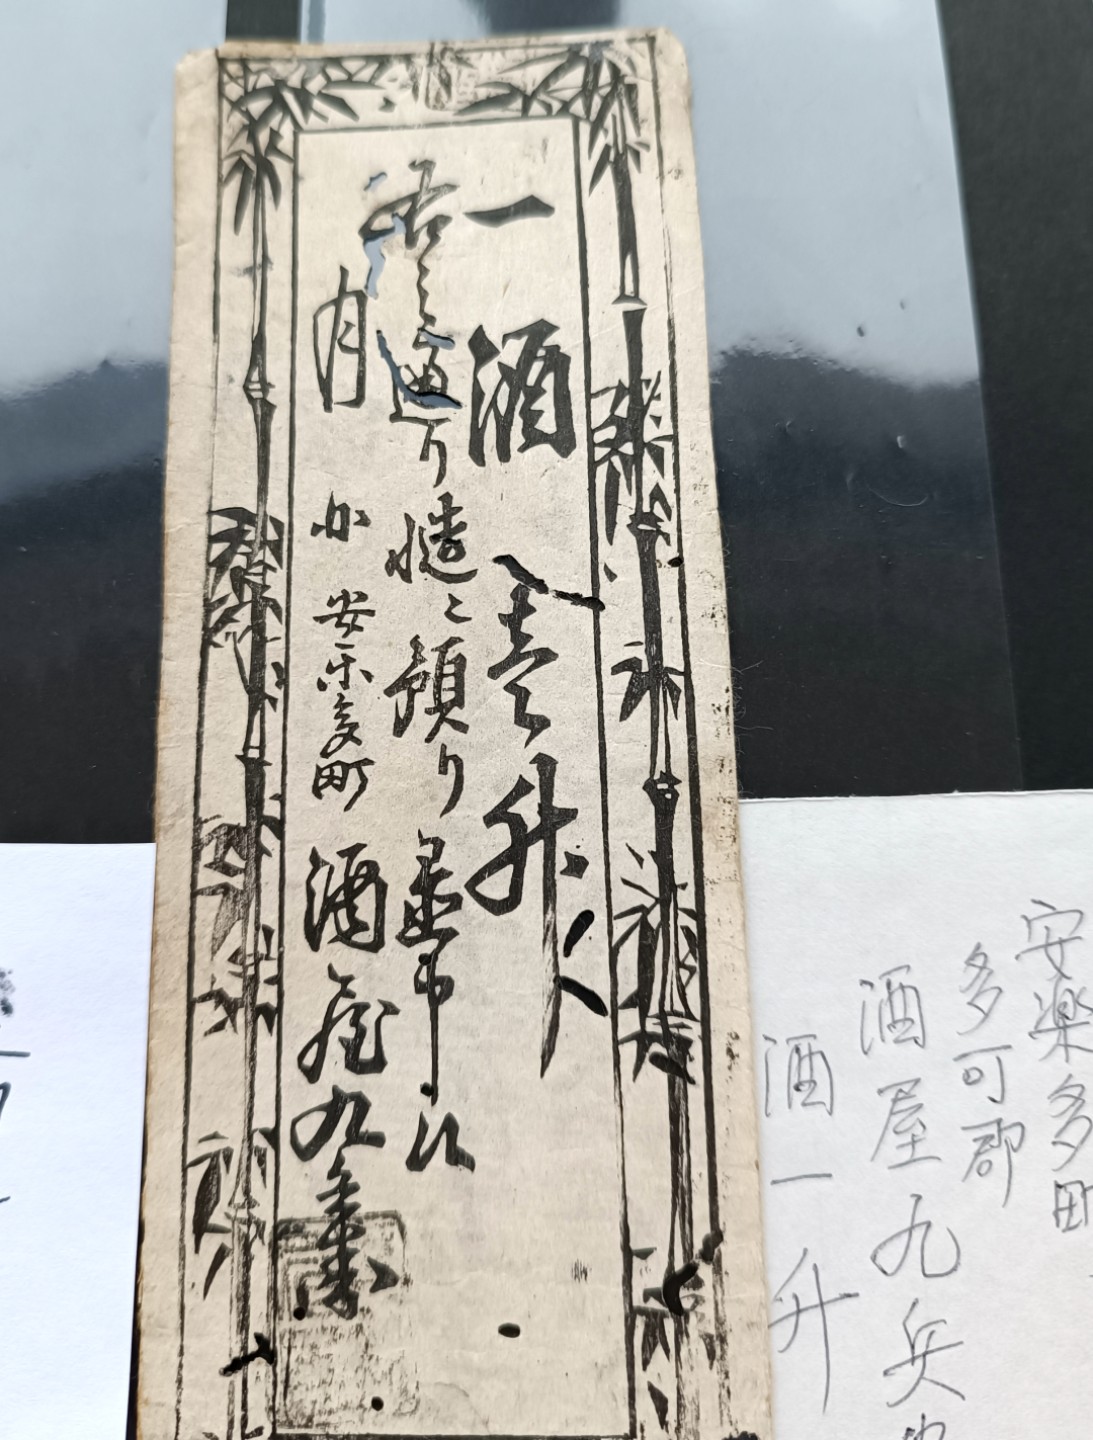 一酒壱升
右之通り慥ニ預り置申候
月 日 安楽多町 酒屋九兵衛
安楽多町
多可郡
酒屋九兵
酒一升